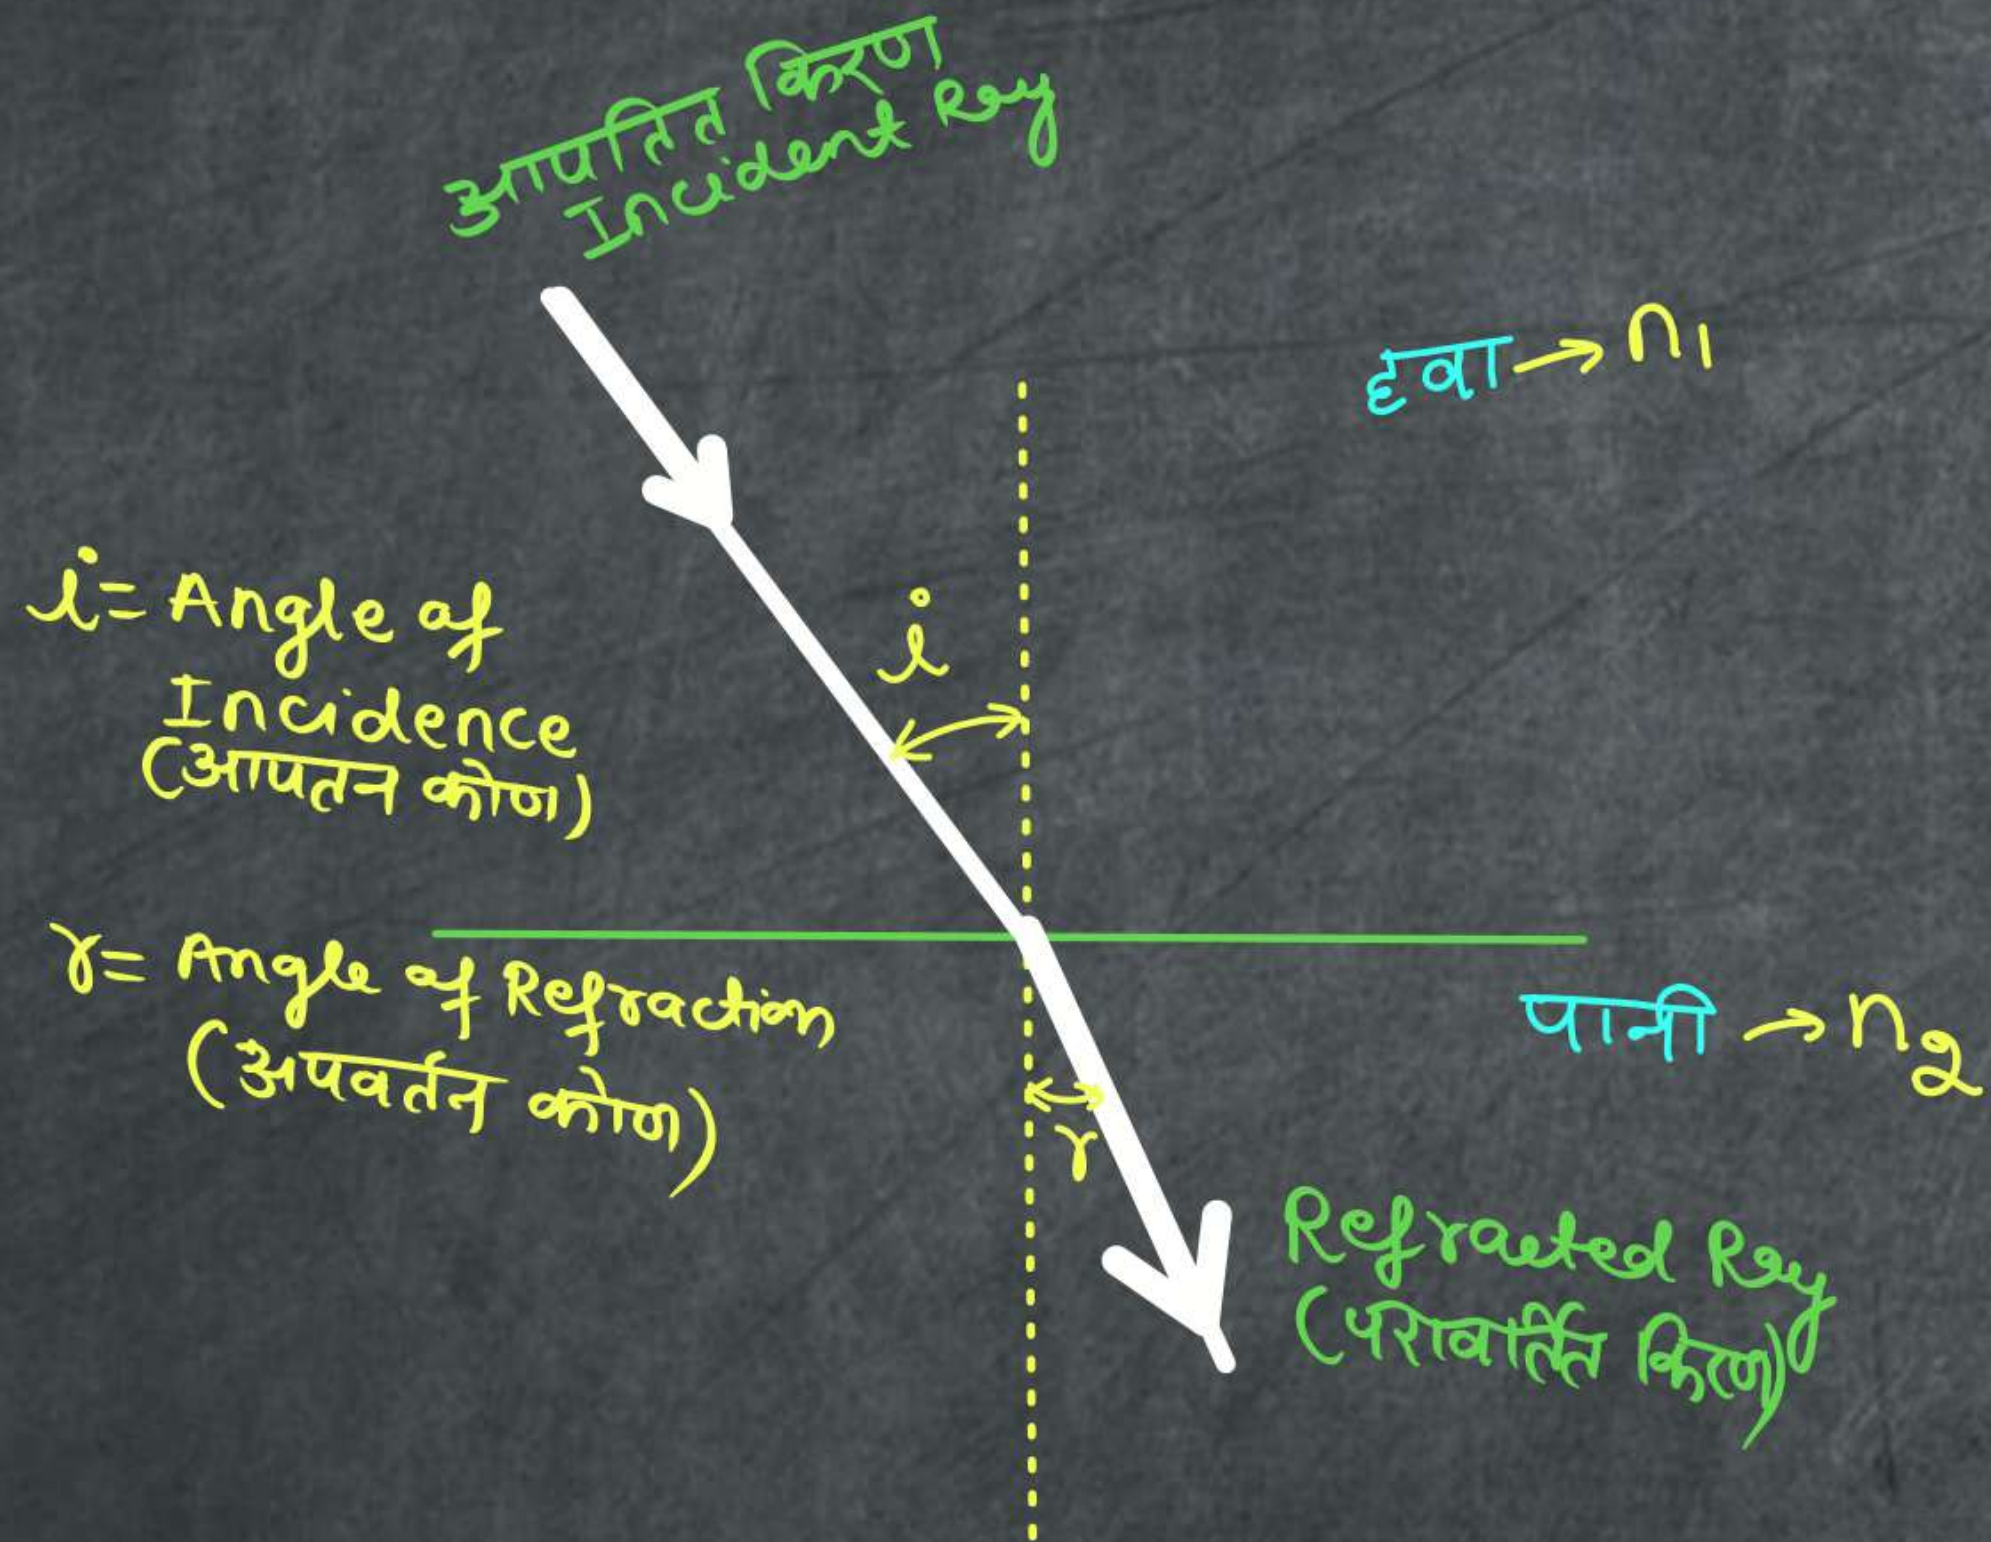 आपतित किरण
Incident Ray
हवा → n1
i
i= Angle of
Incidence
(आपतन कोण)
r= Angle of Refraction
(अपवर्तन कोण)
पानी → n2
r
Refracted Ray
(परावर्तित किरण)